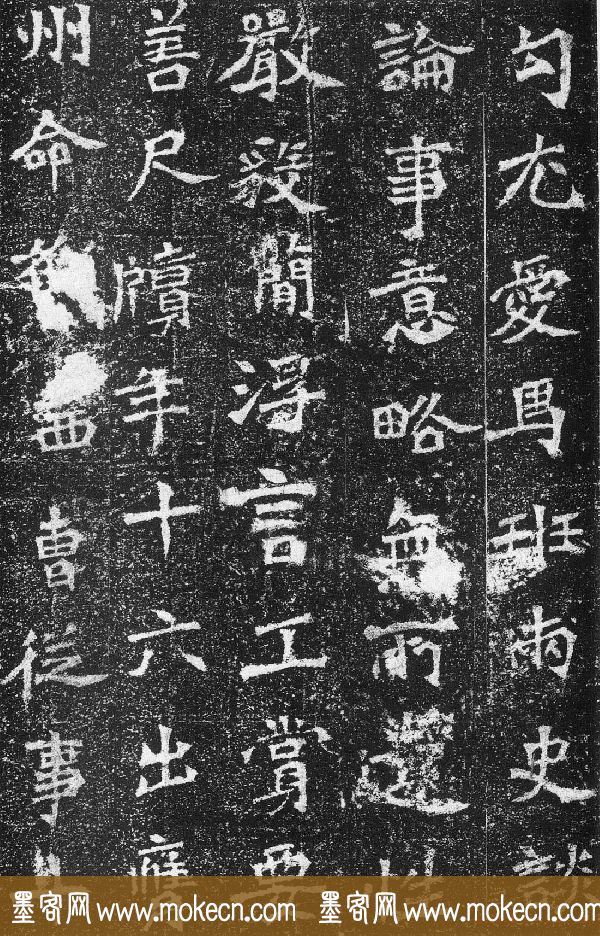 勾尤愛馬班兩史談
論事意略無所遺性
嚴毅簡浮言工賞要
善尺牘年十六出膺
州命西曹從事
墨客网 www.mokecn.com 墨客网 www.mokecn.com